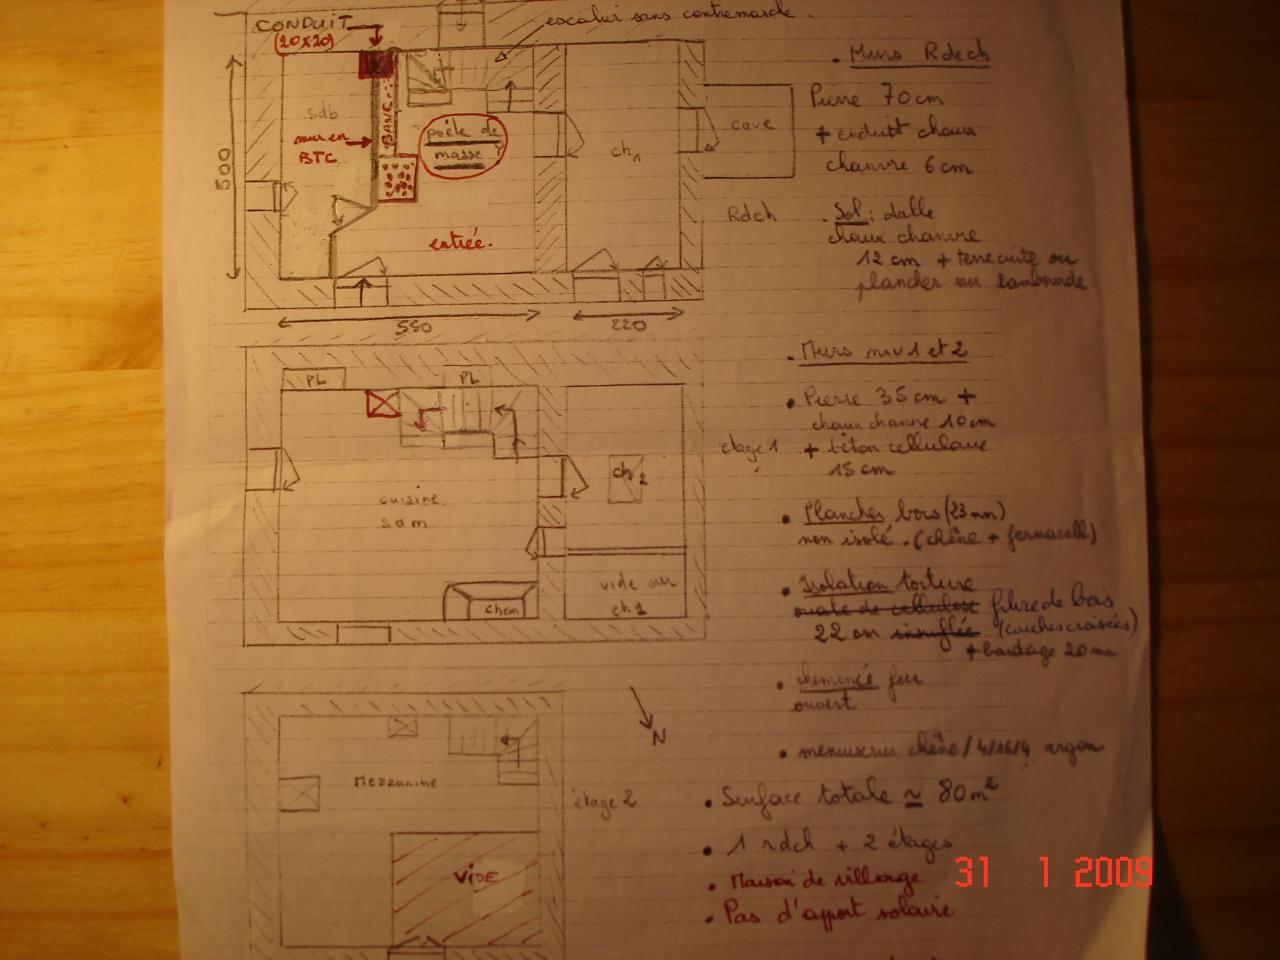 CONDUIT
(20x20)
escalier sans contremarche.
sdb
mur en
BTC
BANC
poêle de
masse?
ch1
cave
500
entrée.
550
220
Rdch
. Murs Rdech
Pierre 70cm
+ enduit chaux
chanvre 6 cm
. Sol: dalle
chaux chanvre
12 cm + terre cuite ou
plancher sur lambourde
PL
PL
cuisine
sam
ch2
chem
vide sur
ch1
étage 1
. Murs niv 1 et 2
• Pierre 35 cm +
chaux chanvre 10cm
+ béton cellulaire
15 cm
• Planches bois (23 mm)
non isolé. (chêne + fermacell)
• Isolation toiture
ouate de cellulose fibre de bois
22 cm insufflée (couches croisées)
+ bardage 20mm
• cheminée feu
ouvert
• menuiseries chêne / 4/16/4 argon
N
Mezzanine
VIDE
étage 2
• Surface totale ≃ 80m²
• 1 rdch + 2 étages
• Maison de village
• Pas d'apport solaire
31 1 2009